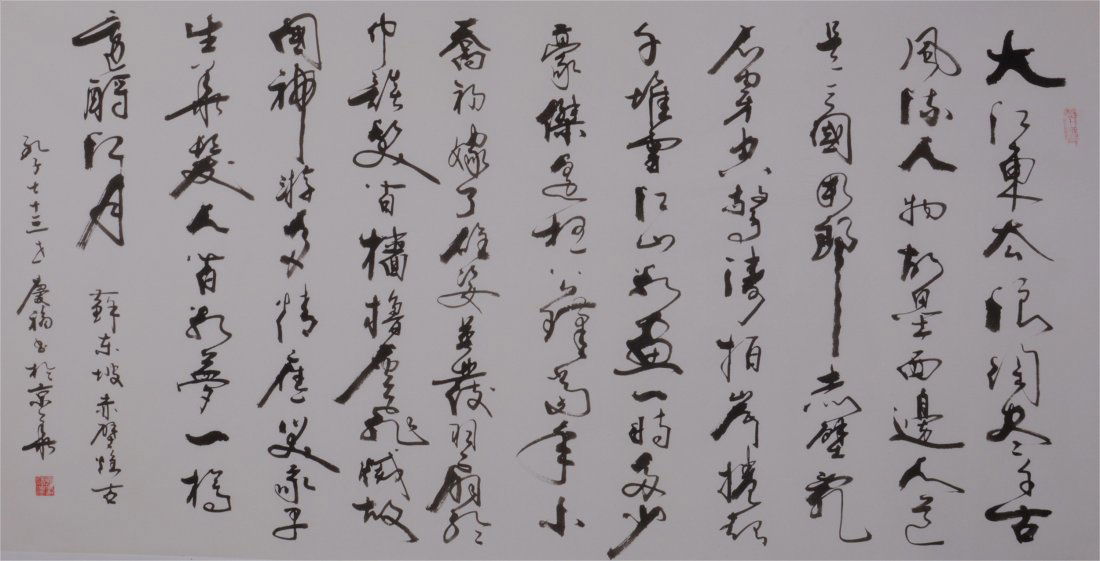 大江東去浪淘尽千古
風流人物故壘西邊人道
是三國周郎赤壁亂
石穿空驚濤拍岸捲起
千堆雪江山如畫一時多少
豪傑遙想公瑾當年小
喬初嫁了雄姿英發羽扇綸
巾談笑間檣櫓灰飛滅故
國神游多情應笑我早
生華髮人間如夢一樽
還酹江月 蘇東坡赤壁懷古
孔子七十三代慶福书於京華